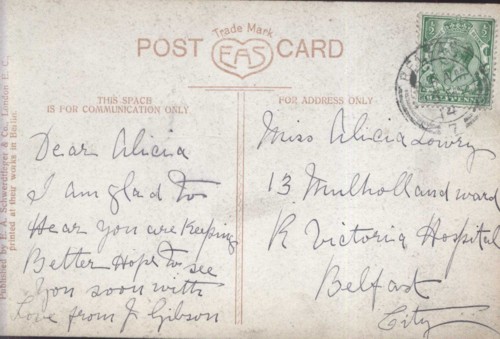 Trade Mark
POST EAS CARD
THIS SPACE
IS FOR COMMUNICATION ONLY
FOR ADDRESS ONLY
Published by E. A. Schwerdtfeger & Co., London E. C.,
printed at their works in Berlin.
Dear Alicia
I am glad to
Hear you are Keeping
Better Hope to see
you soon with
Love from J Gibson
Miss Alicia Lowry
13 Mulholland ward
R Victoria Hospital
Belfast
City